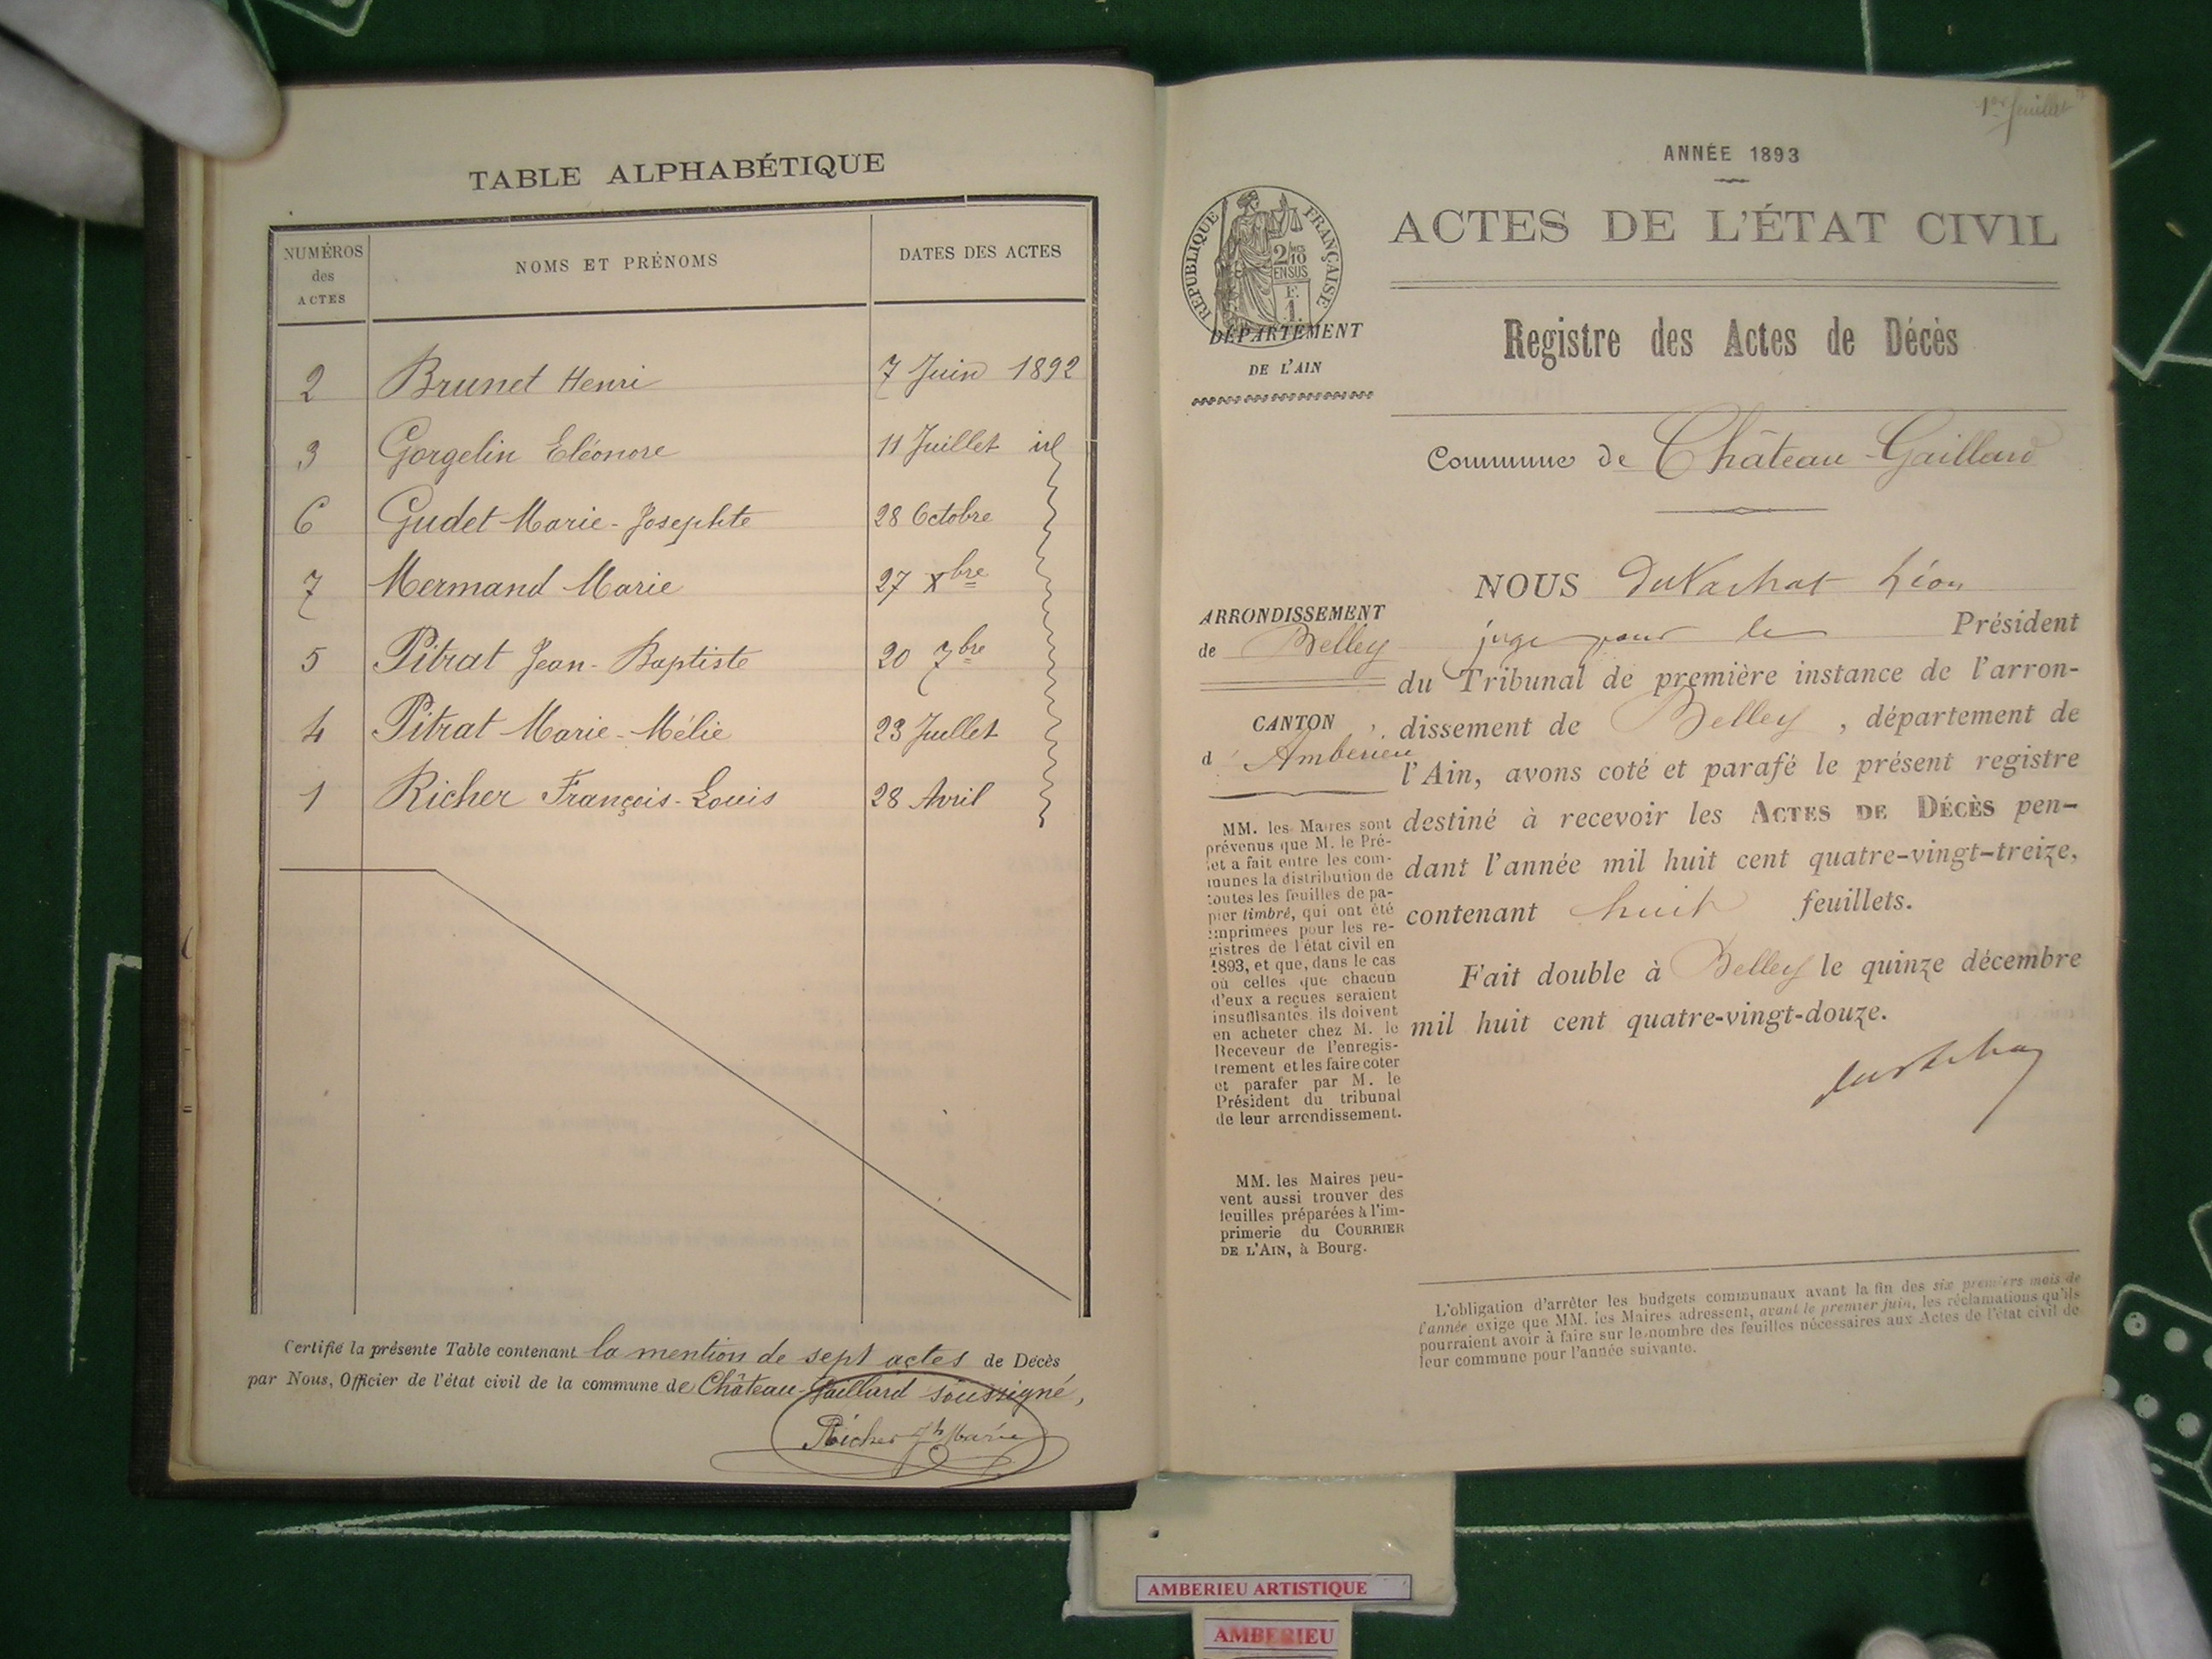 TABLE ALPHABÉTIQUE
NUMÉROS des ACTES
NOMS ET PRÉNOMS
DATES DES ACTES
2 Brunet Henri 7 Juin 1892
3 Gorgelin Eléonore 11 Juillet id
6 Gudet Marie-Josephte 28 Octobre
7 Mermand Marie 27 Xbre
5 Pitrat Jean-Baptiste 20 7bre
4 Pitrat Marie-Mélie 23 Juillet
1 Richer François-Louis 28 Avril
Certifié la présente Table contenant la mention de sept actes de Décès
par Nous, Officier de l'état civil de la commune de Château-Gaillard soussigné,
Richer Jh Marie
1er feuillet
ANNÉE 1893
RÉPUBLIQUE FRANÇAISE
2/10
EN SUS
F.
1.
DÉPARTEMENT
DE L'AIN
ACTES DE L'ÉTAT CIVIL
Registre des Actes de Décès
Commune de Château-Gaillard
ARRONDISSEMENT
de Belley
CANTON
d'Amberieu
MM. les Maires sont
prévenus que M. le Pré-
fet a fait entre les com-
munes la distribution de
toutes les feuilles de pa-
pier timbré, qui ont été
imprimées pour les re-
gistres de l'état civil en
1893, et que, dans le cas
où celles que chacun
d'eux a reçues seraient
insuffisantes, ils doivent
en acheter chez M. le
Receveur de l'enregis-
trement et les faire coter
et parafer par M. le
Président du tribunal
de leur arrondissement.
MM. les Maires peu-
vent aussi trouver des
feuilles préparées à l'im-
primerie du COURRIER
DE L'AIN, à Bourg.
NOUS Léon
juge pour le Président
du Tribunal de première instance de l'arron-
dissement de Belley, département de
l'Ain, avons coté et parafé le présent registre
destiné à recevoir les ACTES DE DÉCÈS pen-
dant l'année mil huit cent quatre-vingt-treize,
contenant huit feuillets.
Fait double à Belley le quinze décembre
mil huit cent quatre-vingt-douze.
L'obligation d'arrêter les budgets communaux avant la fin des six premiers mois de
l'année exige que MM. les Maires adressent, avant le premier juin, les réclamations qu'ils
pourraient avoir à faire sur le nombre des feuilles nécessaires aux Actes de l'état civil de
leur commune pour l'année suivante.
AMBERIEU ARTISTIQUE
AMBERIEU